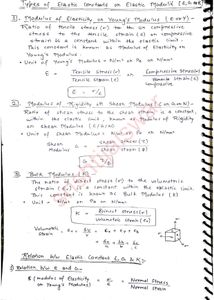 Types of Elastic Constants or Elastic Moduli (E, G & K)
1). Modulus of Elasticity or Young's Modulus (E or Y)
Ratio of tensile stress (σ) to the or compressive
stress to the tensile strain (ε) or compressive
strain is a constant within the elastic limit.
This constant is known as Modulus of Elasticity or
Young's Modulus.
Unit of Young's Modulus = N/m² or Pa or N/mm²
E = Tensile Stress (σ) / Tensile Strain (ε) or Compressive Stress (σ) / Compressive
E = σ/ε
2). Modulus of Rigidity or Shear Modulus (C or G or N)
Ratio of shear stress to the shear strain is a constant
within the elastic limit, known as Modulus of Rigidity
or Shear Modulus (C/G/N)
Unit of Shear Modulus = N/m² or Pa or N/mm²
Shear Modulus = Shear stress (τ) / Shear strain (ϕ)
3). Bulk Modulus (K)
The ratio of direct stress (σ) to the volumetric
strain (εv) is a constant within the elastic limit.
This constant is known as Bulk Modulus (K)
Unit = N/m² or Pa or N/mm²
K = Direct stress (σ) / Volumetric strain (εv)
Volumetric Strain
Relation b/w Elastic Constant E, G & K :-
1) Relation b/w E and G :-
E (modulus of Elasticity or Young's Modulus) = Normal Stress / Normal Strain